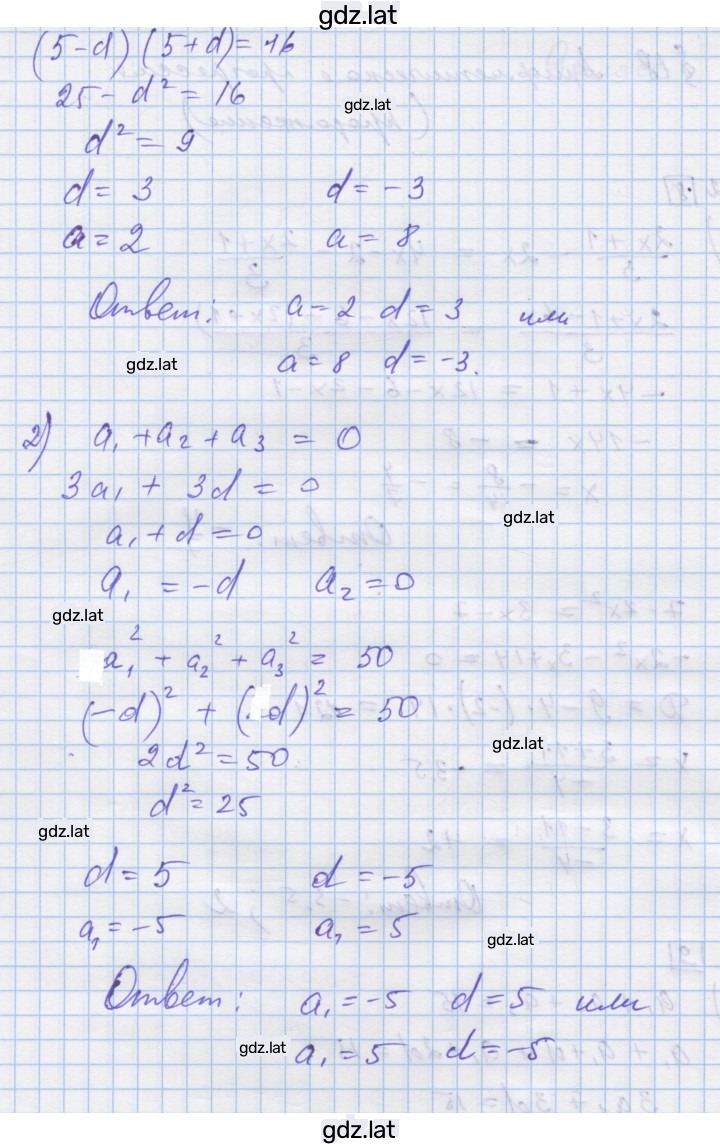 gdz.lat
(5-d)(5+d)=16
25-d²=16
gdz.lat
d²=9
d=3 d=-3
a=2 a=8
Ответ: a=2 d=3 или
gdz.lat
a=8 d=-3.
2) a₁+a₂+a₃=0
3a₁+3d=0
gdz.lat
a₁+d=0
a₁=-d a₂=0
gdz.lat
a₁²+a₂²+a₃²=50
(-d)²+(d)²=50
gdz.lat
2d²=50
d²=25
gdz.lat
d=5 d=-5
a₁=-5 a₁=5
gdz.lat
Ответ: a₁=-5 d=5 или
gdz.lat
a₁=5 d=-5
gdz.lat